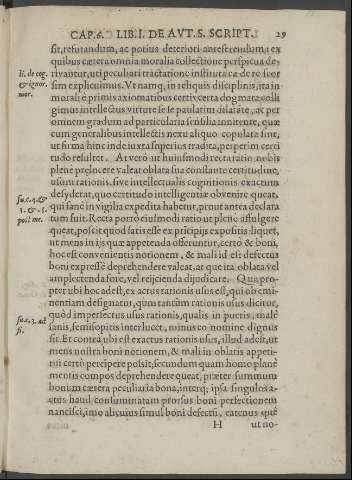 CAP. 6. LIB. I. DE AVT. S. SCRIPT. 29
sit, refutandum, ac potius deteriori anteferendum; ex
quibus cætera omnia moralia collectione perspicua de-
rivantur, uti peculiari tractatione instituta ea de re suo
li. de cog.
& ignor.
mor.
sim explicuimus. Ut namq, in reliquis disciplinis, ita in
morali è primis axiomatibus certis certa dogmata colli
gimus intellectus virtute se se paulatim dilatãte, ac per
omnem gradum ad particularia sensilia innitente, quæ
cum generalibus intellectis nexu aliquo copulata sint,
ut firma hinc inde iuxta superius tradita, persperim certi
tudo resultet. At verò ut huiusmodi recta ratio nobis
plenè prælucere valeat oblata sua constante certitudine,
usum rationis, sive intellectualis cognitionis exactum
desyderat, quo certitudo intelligentiæ obvenire queat,
su. c. 4. &
1. & 5.
post me.
qui sanè in vigilia expedita habetur, prout antea declara
tum fuit. Recta porrò eiusmodi ratio ut plenè affulgere
queat, poscit quod satis esse ex præcipijs expositis liquet,
ut mens in ijs quæ appetenda offeruntur, certò & boni,
hoc est convenientis notionem, & mali id est defectus
boni expressè deprehendere valeat, atque ita oblata vel
amplectenda fore, vel reijcienda dijudicare. Qua pro-
pter ubi hoc adest, ex actus rationis usus est, qui ob emi-
nentiam designatur, qũm tantũm rationis usus dicitur,
quòd imperfectus usus rationis, qualis in pueris, malè
su. c. 3. ad
fi.
sanis, semisopitis interlucet, minus eo nomine dignus
sit. Et contrà ubi est exactus rationis usus, illud adest, ut
mens nostra boni notionem, & mali in oblatis appeti-
tui certò percipere possit; secundum quam homo planè
mentis compos deprehendere queat, præter summum
bonum cætera peculiaria bona, interq; ipsa singulos a-
ctus haud consummatam prorsus boni perfectionem
nancisci, imo alicuius simul boni defectũ, eatenus spõ
H ut no-